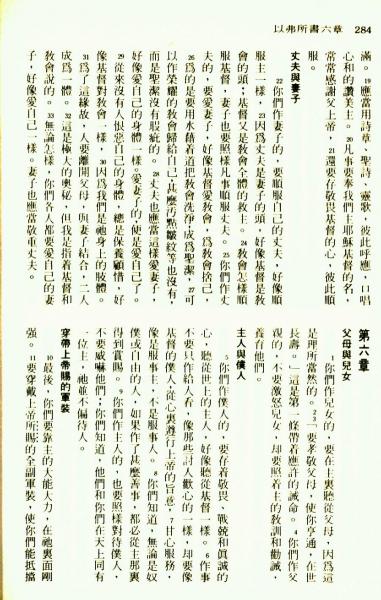 以弗所書六章　284
滿。19應當用詩章、聖詩、靈歌，彼此呼應，口唱
心和的讚美主。20凡事要奉我們主耶穌基督的名，
常常感謝父上帝，21還要存敬畏基督的心，彼此順
服。
丈夫與妻子
22你們作妻子的，要順服自己的丈夫，好像順
服主一樣，23因爲丈夫是妻子的頭，好像基督是教
會的頭；基督又是教會全體的救主。24教會怎樣順
服基督，妻子也要照樣凡事順服丈夫。25你們作丈
夫的，要愛妻子，好像基督愛教會，爲教會捨己，
26爲的是要用水藉着道把教會洗淨成爲聖潔，27可
以作榮耀的教會歸給自己，甚麼污點皺紋等也沒有，
而是聖潔沒有瑕疵的。28丈夫也應當這樣愛妻子，
好像愛自己的身體一樣。愛妻子的，便是愛自己了。
29從來沒有人恨惡自己的身體，總是保養顧惜，好
像基督對教會一樣，30因爲我們是祂身上的肢體。
31爲了這緣故，人要離開父母，與妻子結合，二人
成爲一體。32這是極大的奧秘，但我是指着基督和
教會說的。33無論怎樣，你們各人都要愛自己的妻
子，好像愛自己一樣。妻子也應當敬重丈夫。
第六章
父母與兒女
1你們作兒女的，要在主裏聽從父母，因爲這
是理所當然的。2 3「要孝敬父母，使你亨通，在世
長壽。」這是第一條帶着應許的誡命。4你們作父
親的，不要激怒兒女，卻要照着主的教訓和勸誡，
養育他們。
主人與僕人
5你們作僕人的，要存着敬畏、戰兢和眞誠的
心，聽從世上的主人，好像聽從基督一樣。6作事
不要只作給人看，像那些討人歡心的一樣，卻要像
基督的僕人，從心裏遵行上帝的旨意，7甘心服務，
像是服事主，不是服事人。8你們知道，無論是奴
僕或自由的人，如果作了甚麼善事，都必從主那裏
得到賞賜。9你們作主人的，也要照樣對待僕人，
不要威嚇他們；你們知道，他們和你們在天上同有
一位主，祂並不偏待人。
穿戴上帝賜的軍裝
10最後，你們要靠主的大能大力，在祂裏面剛
強。11要穿戴上帝所賜的全副軍裝，使你們能抵擋